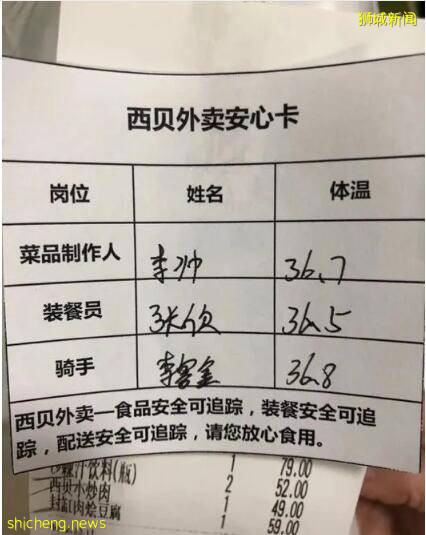 狮城新闻
西贝外卖安心卡
岗位 姓名 体温
菜品制作人 李帅 36.7
装餐员 36.5
骑手 36.8
西贝外卖—食品安全可追踪，装餐安全可追
踪，配送安全可追踪，请您放心食用。
汁饮料(瓶) 1 79.00
西贝小炒肉 2 52.00
封缸肉烩豆腐 1 49.00
1 59.00
shicheng.news